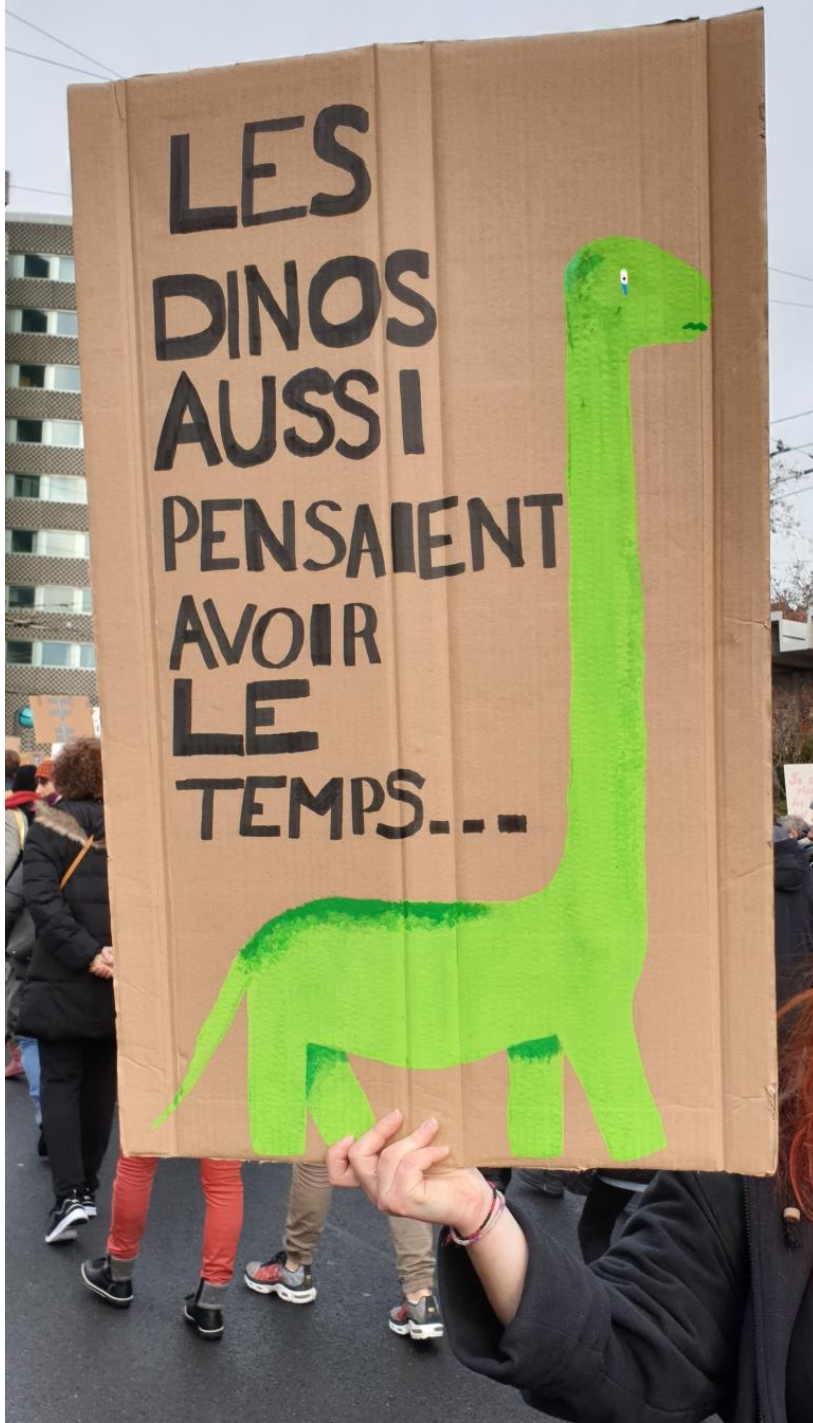 LES
DINOS
AUSSI
PENSAIENT
AVOIR
LE
TEMPS...